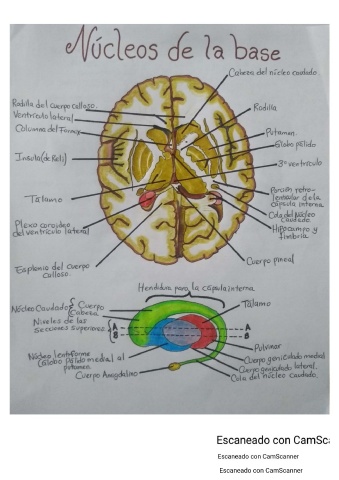 Núcleos de la base
Cabeza del núcleo caudado.
Rodilla del cuerpo calloso.
Ventriculo lateral
Columna del Fórnix
Insula (de Reil)
Tálamo
Plexo coroideo
del ventrículo lateral
Esplenio del cuerpo
calloso.
Rodilla
Putamen.
Globo pálido
3º ventrículo
Porción retro-
lenticular de la
cápsula interna
Cola del Núcleo
caudado.
Hipocampo y
fimbria.
Cuerpo pineal
Hendidura para la cápsula interna.
Núcleo Caudado { Cuerpo
Cabeza
Niveles de las
secciones superiores {
A
B
A
B
Tálamo
Núcleo lentiforme
(Globo pálido medial al
putamen
Cuerpo Amigdalino
Pulvinar
Cuerpo geniculado medial
Cuerpo geniculado lateral.
Cola del núcleo caudado.
Escaneado con CamSca
Escaneado con CamScanner
Escaneado con CamScanner